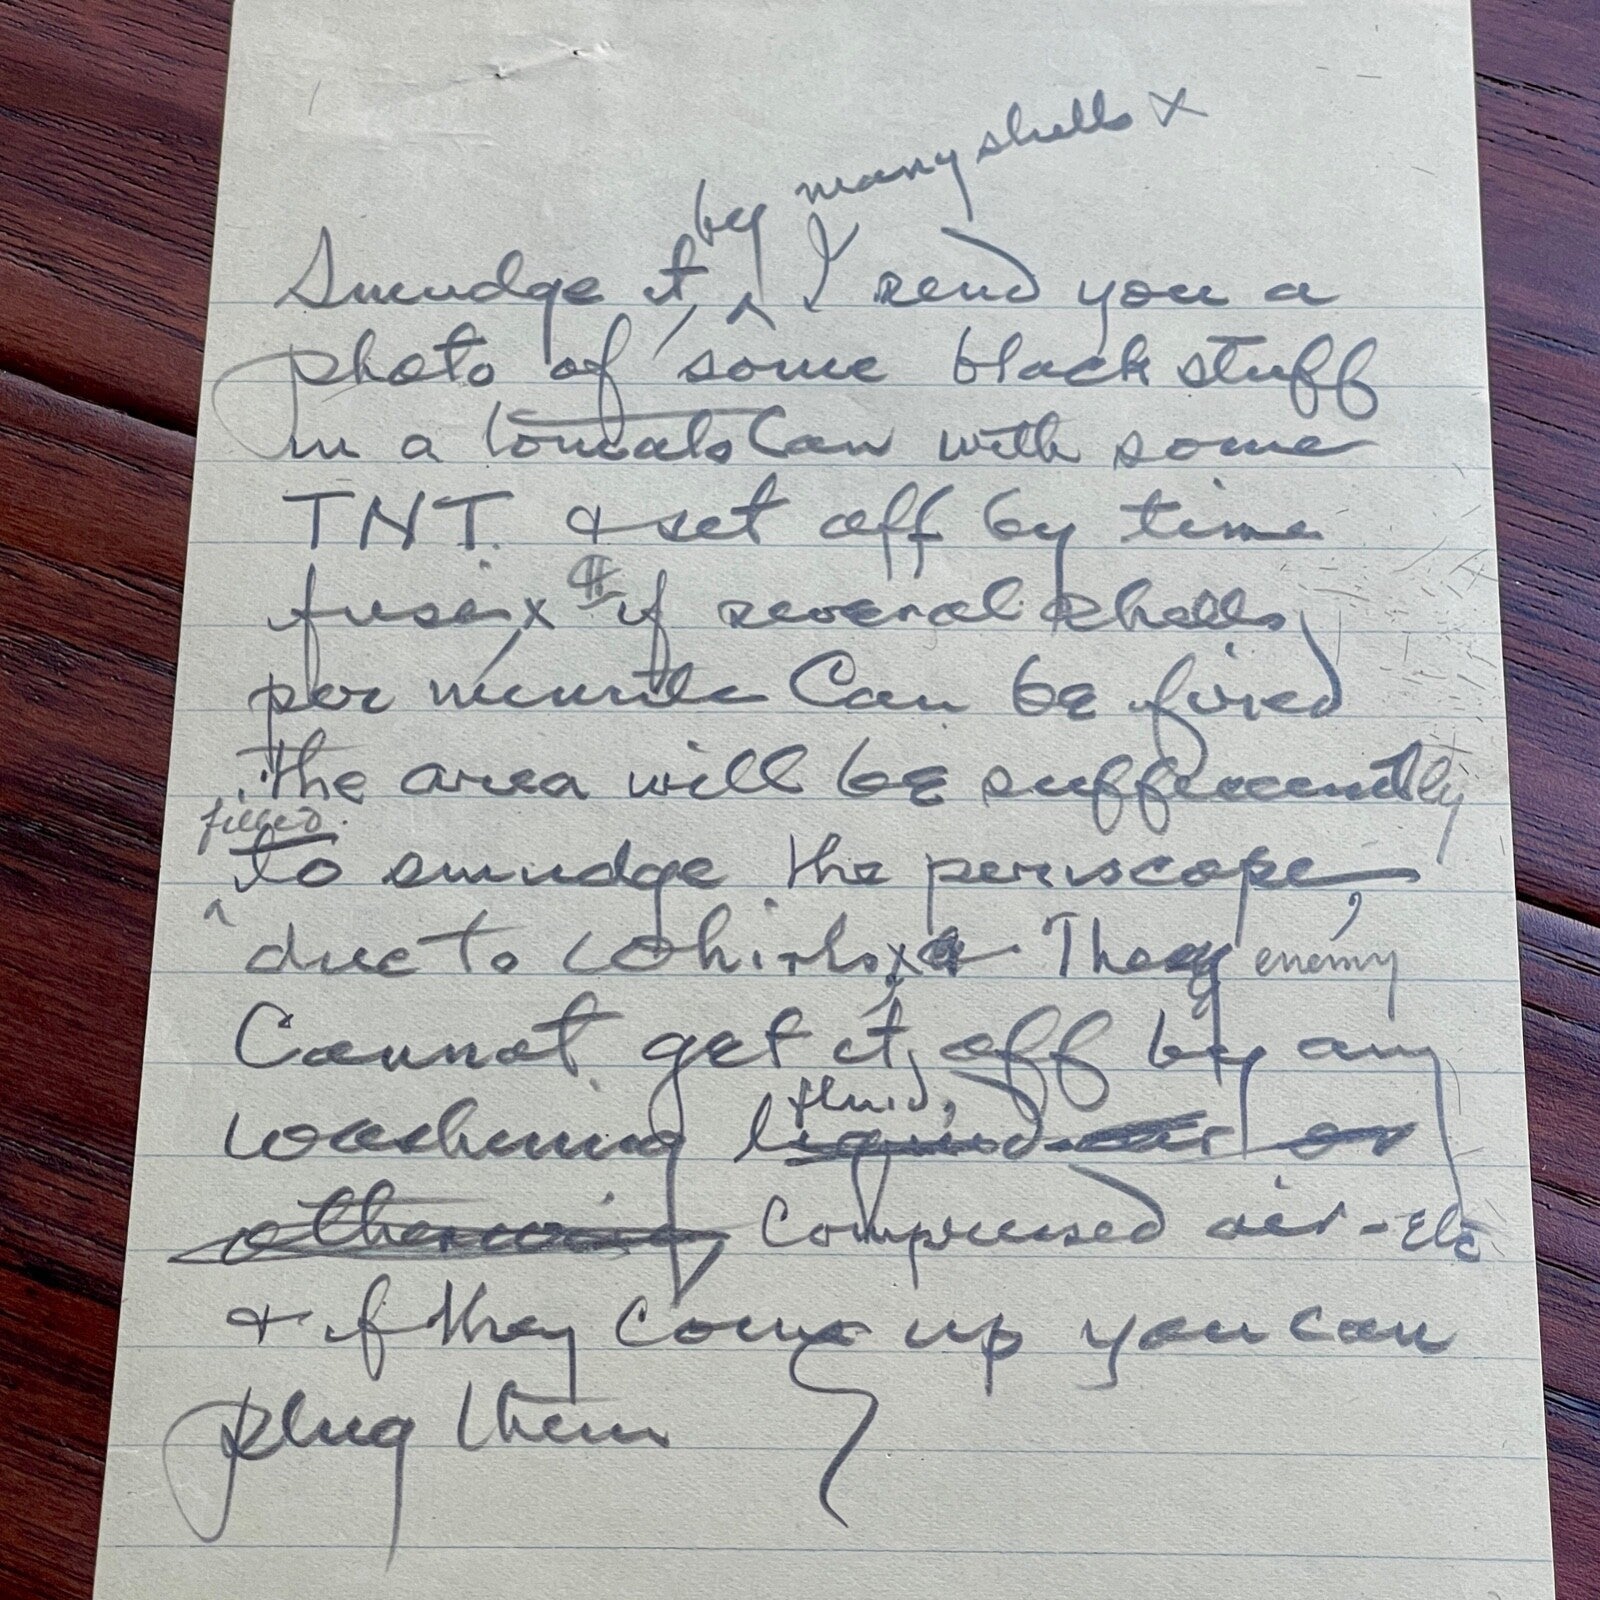 by many shells x
Smudge it, ^ I send you a
photo of some black stuff
in a tomato Can with some
TNT. & set off by time
fuse x if several shells
per minute Can be fired
the area will be sufficiently
filled
^ to smudge the periscope,
due to whirls x They enemy
Cannot get it off by any
fluid,
washing liquid or
otherwise Compressed air - Etc
& if they come up you can
plug them